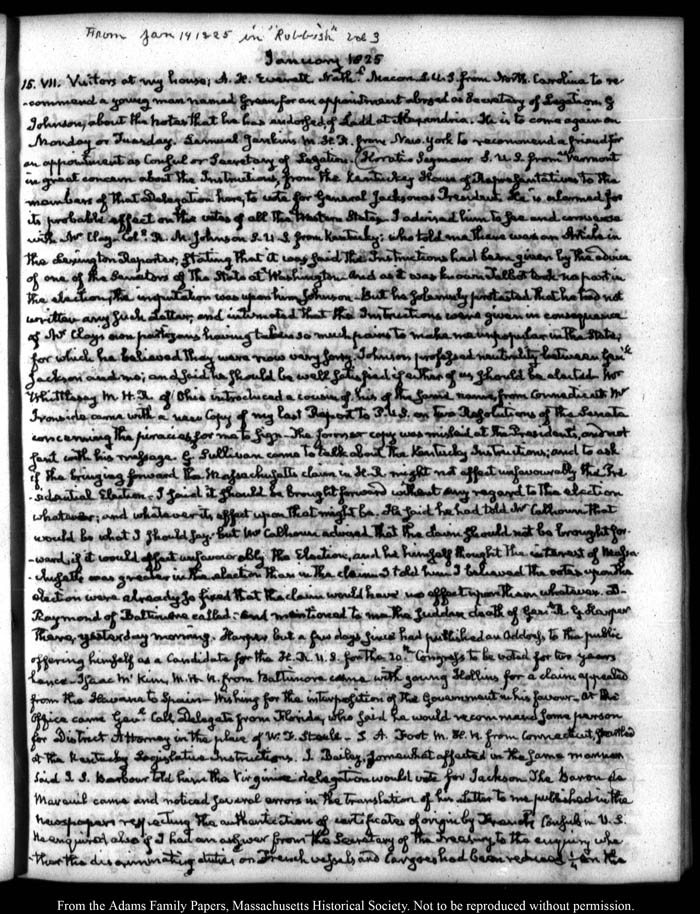 From Jan 14 1825 in "Rubbish" vol 3
January 1825
15. VII. Visitors at my house; A. H. Everett, Nath.l Macon S. U. S. from North Carolina to re-
-commend a young man named Green for an appointment abroad as Secretary of Legation. G
Johnson, about the Notes that he has endorsed, of Ladd at Alexandria. He is to come again on
Monday or Tuesday. Samuel Jenkins M. H. R. from New York to recommend a friend for
an appointment as Consul or Secretary of Legation. Horatio Seymour S. U. S. from Vermont
in great concern about the Instructions, from the Kentucky House of Representatives to the
members of that Delegation here, to vote for General Jackson as President. He is alarmed for
its probable effect on the votes of all the Western States. I advised him to see and converse
with Mr Clay. Col.l R. M. Johnson S. U. S. from Kentucky; who told me there was an Article in
the Lexington Reporter, stating that it was said the Instructions had been given by the advice
of one of the Senators of the State at Washington. And as it was known Talbot took no part in
the election, the imputation was upon him, Johnson. But he solemnly protested that he had not
written any such Letter, and intimated that the Instructions were given in consequence
of Mr Clay's own partizans having taken so much pains to make me unpopular in the State,
for which he believed they were now very sorry. Johnson professed neutrality between Gen.l
Jackson and me; and said he should be well satisfied if either of us should be elected. Mr
Whittlesey M. H. R. of Ohio introduced a cousin of his of the same name, from Connecticut. Mr
Ironside came with a new Copy of my last Report to P. U. S. on two Resolutions of the Senate
concerning the piracies, for me to sign. The former copy was mislaid at the President's, and not
sent with his message. G. Sullivan came to talk about the Kentucky Instructions; and to ask
if the bringing forward the Massachusetts claim in H. R. might not affect unfavourably the Pre-
-sidential Election. I said it should be brought forward without any regard to the election
whatever; and whatever its effect upon that might be. He said he had told Mr Calhoun that
would be what I should say: but Mr Calhoun advised that the claim should not be brought for-
-ward, if it would affect unfavourably the Election, and he himself thought the interest of Massa-
-chusetts was greater in the election than in the claim. I told him I believed the votes upon the
election were already so fixed that the claim would have no effect upon them whatever. D.
Raymond of Baltimore called; and mentioned to me the sudden death of Gen.l R. G. Harper
there, yesterday morning. Harper but a few days since had published an Address to the public
offering himself as a Candidate for the H. R. U. S. for the 20.th Congress to be voted for two years
hence. Isaac McKim, M. H. R. from Baltimore came with young Hollins for a claim appealed
from the Havana to Spain. Wishing for the interposition of the Government in his favour. At the
Office came Gen.l Call Delegate from Florida, who said he would recommend some person
for District Attorney in the place of W. F. Steele. S. A. Foot M. H. R. from Connecticut,
at the Kentucky Legislative Instructions. J. Bailey, somewhat affected in the same manner
said J. S. Barbour told him the Virginia delegation would vote for Jackson. The Baron de
Mareuil came and noticed several errors in the translation of his Letter to me published in the
newspapers respecting the authentication of certificates of origin by French Consuls in U. S.
He enquired also if I had an answer from the Secretary of the Treasury to the enquiry whe-
-ther the discriminating duties on French vessels and Cargoes had been reduced 1/4 on the
From the Adams Family Papers, Massachusetts Historical Society. Not to be reproduced without permission.